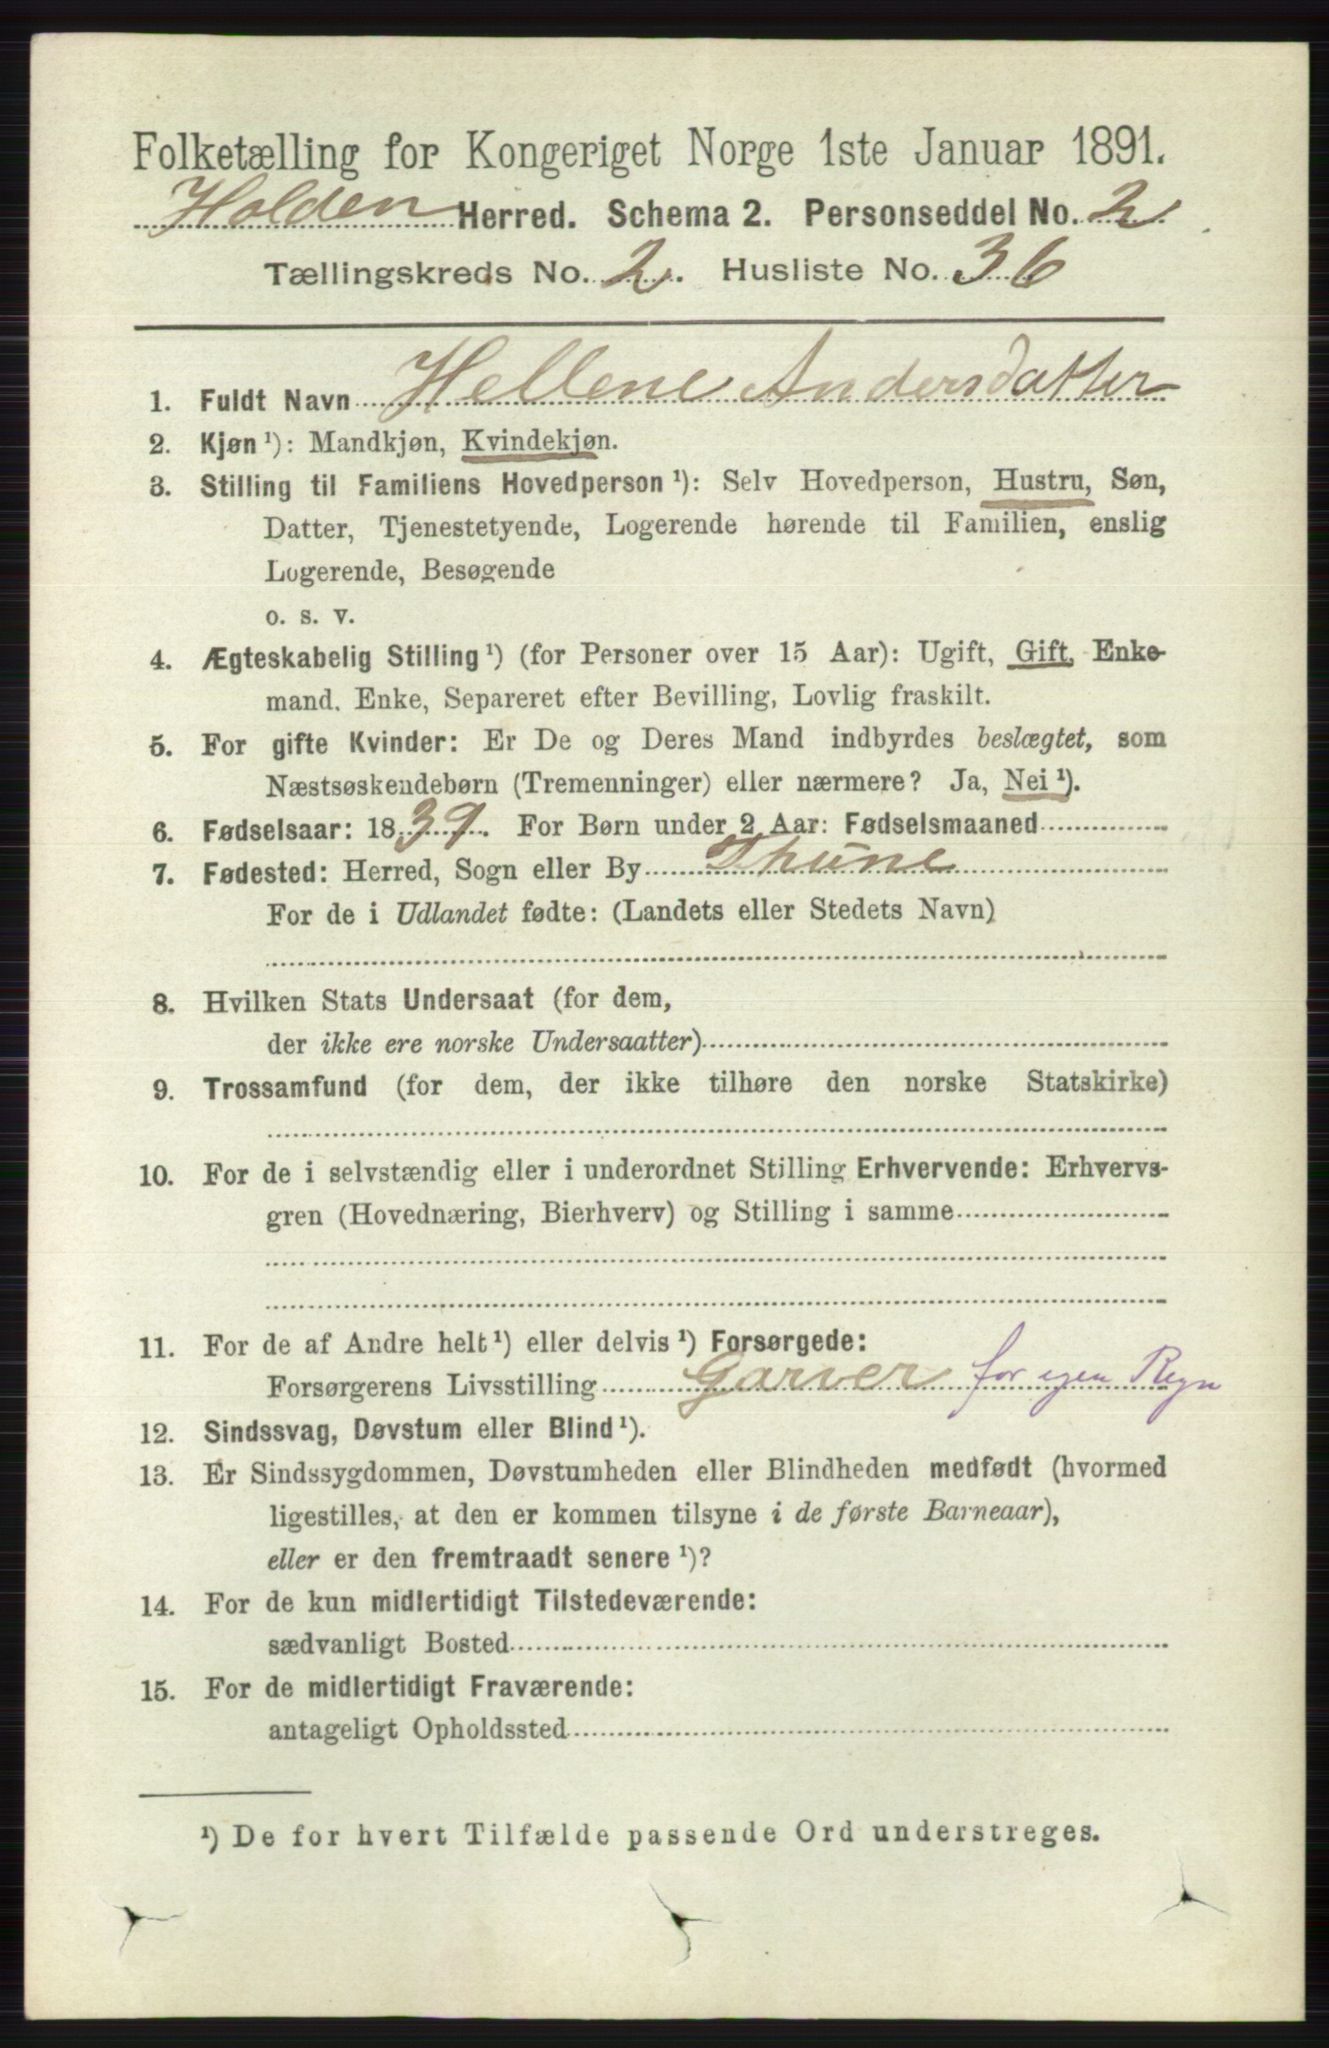 Folketælling for Kongeriget Norge 1ste Januar 1891.
Holden Herred. Schema 2. Personseddel No. 2
Tællingskreds No. 2. Husliste No. 36
1. Fuldt Navn Hellene Andersdatter
2. Kjøn ¹): Mandkjøn, Kvindekjøn.
3. Stilling til Familiens Hovedperson ¹): Selv Hovedperson, Hustru, Søn,
Datter, Tjenestetyende, Logerende hørende til Familien, enslig
Logerende, Besøgende
o. s. v.
4. Ægteskabelig Stilling ¹) (for Personer over 15 Aar): Ugift, Gift, Enke-
mand, Enke, Separeret efter Bevilling, Lovlig fraskilt.
5. For gifte Kvinder: Er De og Deres Mand indbyrdes beslægtet, som
Næstsøskendebørn (Tremenninger) eller nærmere? Ja, Nei ¹).
6. Fødselsaar: 1839. For Børn under 2 Aar: Fødselsmaaned
7. Fødested: Herred, Sogn eller By Thune
For de i Udlandet fødte: (Landets eller Stedets Navn)
8. Hvilken Stats Undersaat (for dem,
der ikke ere norske Undersaatter)
9. Trossamfund (for dem, der ikke tilhøre den norske Statskirke)
10. For de i selvstændig eller i underordnet Stilling Erhvervende: Erhvervs-
gren (Hovednæring, Bierhverv) og Stilling i samme
11. For de af Andre helt ¹) eller delvis ¹) Forsørgede:
Forsørgerens Livsstilling Garver for egen Regn
12. Sindssvag, Døvstum eller Blind ¹).
13. Er Sindssygdommen, Døvstumheden eller Blindheden medfødt (hvormed
ligestilles, at den er kommen tilsyne i de første Barneaar),
eller er den fremtraadt senere ¹)?
14. For de kun midlertidigt Tilstedeværende:
sædvanligt Bosted
15. For de midlertidigt Fraværende:
antageligt Opholdssted
¹) De for hvert Tilfælde passende Ord understreges.